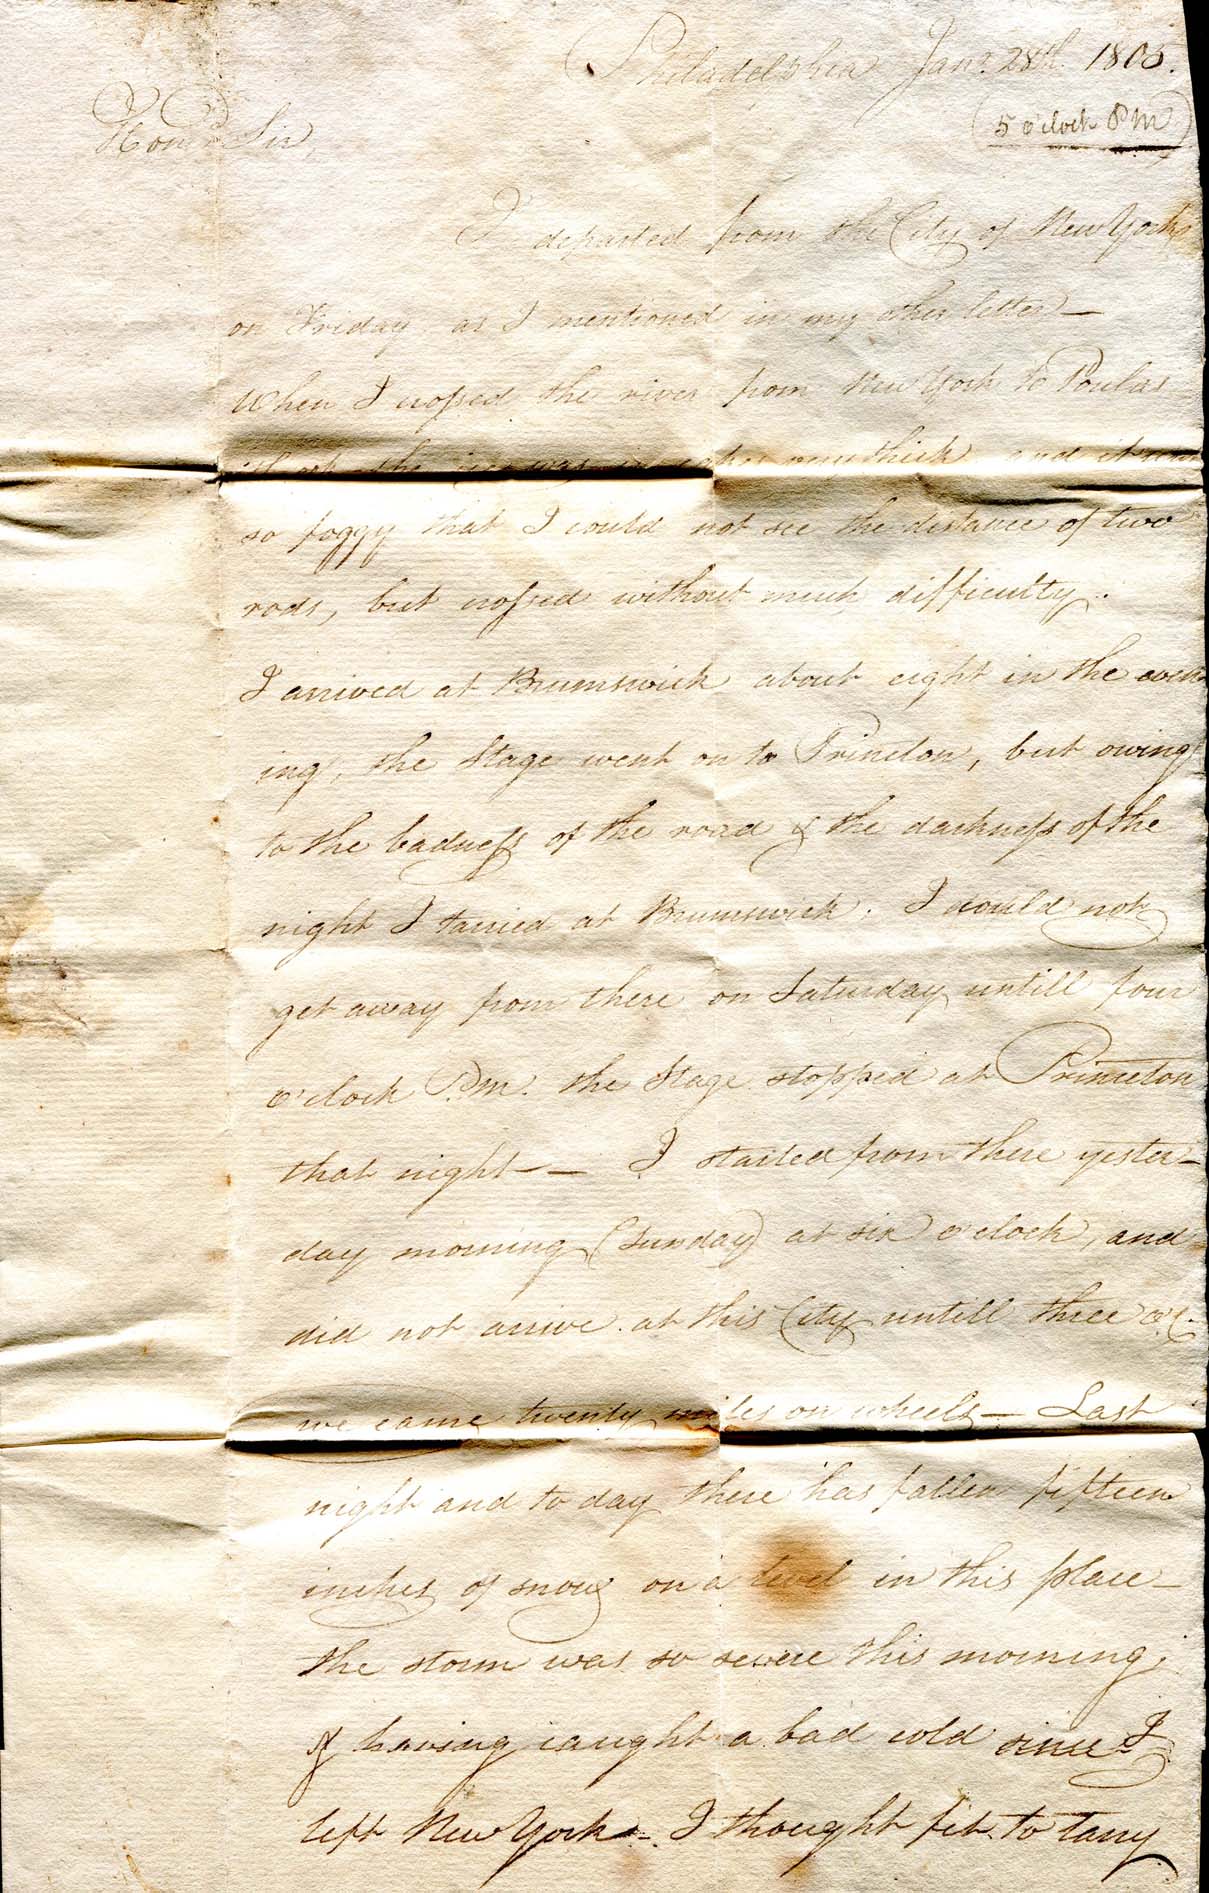 Philadelphia Jany. 28th. 1805.
(5 o'clock P M)
Hond. Sir,
I departed from the City of New York
on Friday as I mentioned in my other letter—
When I crossed the river from New York to Poulas
the ice was very thick and it was
so foggy that I could not see the distance of two
rods, but crossed without much difficulty.
I arrived at Brumswick about eight in the even
ing, the Stage went on to Princton, but owing
to the badness of the road & the darkness of the
night I tarried at Brumswick. I could not
get away from there on Saturday untill four
o'clock P.M. the Stage stopped at Princeton
that night—— I started from there yester-
day morning (Sunday) at six o'clock, and
did not arrive at this City untill three o'C.
we came twenty miles on wheels— Last
night and to day there has fallen fifteen
inches of snow on a level in this place—
the storm was so severe this morning,
& having caught a bad cold since I
left New York—. I thought fit to tarry